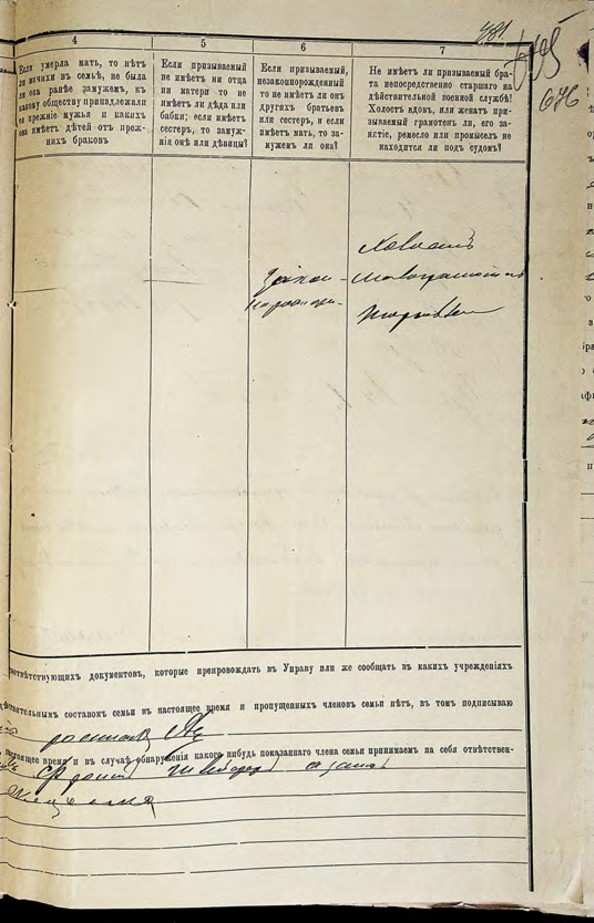 481
645
646
4
5
6
7
Если умерла мать, то нѣтъ
ли мачихи въ семьѣ, не была
ли она ранѣе замужемъ, къ
какому обществу принадлежали
ея прежніе мужья и какихъ
она имѣетъ дѣтей отъ преж-
нихъ браковъ
Если призываемый
не имѣетъ ни отца
ни матери то не
имѣетъ ли дѣда или
бабки; если имѣетъ
сестеръ, то замуж-
нія онѣ или дѣвицы?
Если призываемый,
незаконнорожденный
то не имѣетъ ли онъ
другихъ братьевъ
или сестеръ, и если
имѣетъ мать, то за-
мужемъ ли она?
Не имѣетъ ли призываемый бра-
та непосредственно старшаго на
дѣйствительной военной службѣ!
Холостъ вдовъ, или женатъ при-
зываемый грамотенъ ли, его за-
нятіе, ремесло или промыселъ не
находится ли подъ судомъ?
Холостъ
малограмотенъ
оотвѣтствующихъ документовъ, которые препровождать въ Управу или же сообщать въ какихъ учрежденіяхъ
дѣйствительнымъ составомъ семьи въ настоящее время и пропущенныхъ членовъ семьи нѣтъ, въ томъ подписываю
настоящее время и въ случаѣ обнаруженія какого нибудь показаннаго члена семьи принимаемъ на себя отвѣтствен-